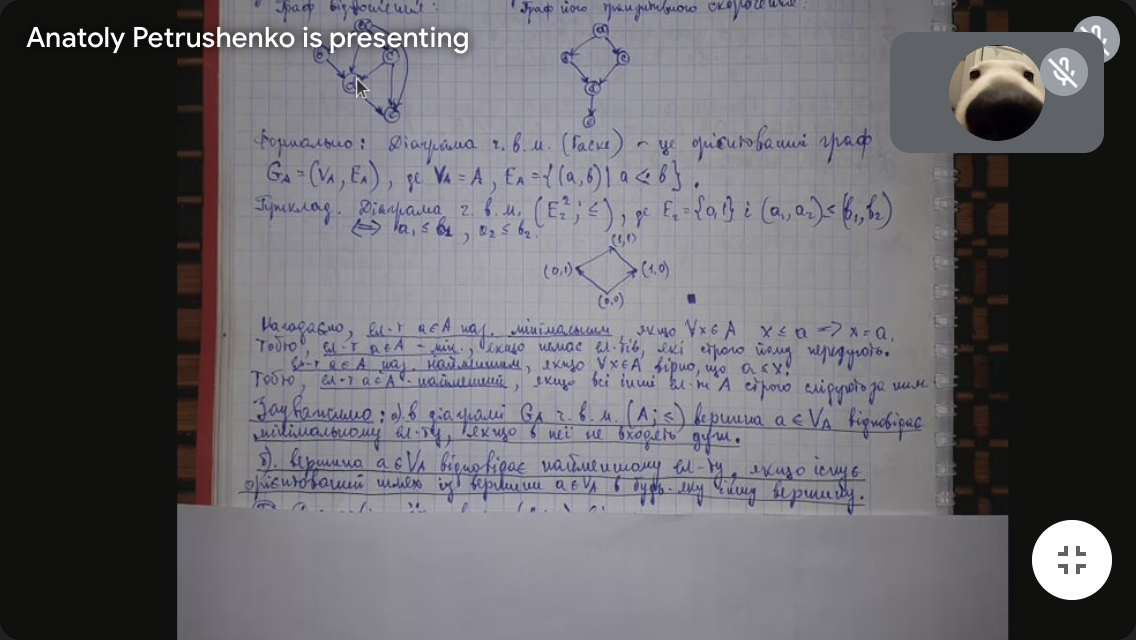 Граф відношення:
Граф його транзитивного скорочення:
Anatoly Petrushenko is presenting
a
b
c
d
e
Формально: Діаграма ч. в. м. (Гассе) – це орієнтований граф
G_A = (V_A, E_A), де V_A = A, E_A = {(a, b) | a <· b}.
Приклад. Діаграма ч. в. м. (E₂²; ≤), де E₂ = {0,1} і (a₁, a₂) ≤ (b₁, b₂)
⟺ a₁ ≤ b₁, a₂ ≤ b₂.
(1,1)
(0,1) (1,0)
(0,0)
Нагадаємо, ел-т a∈A наз. мінімальним, якщо ∀x∈A x ≤ a => x = a.
Тобто, ел-т a∈A – мін., якщо немає ел-тів, які строго йому передують.
Ел-т a∈A наз. найменшим, якщо ∀x∈A вірно, що a ≤ x.
Тобто, ел-т a∈A – найменший, якщо всі інші ел-ти A строго слідують за ним.
Зауважимо: а). в діаграмі G_A ч. в. м. (A; ≤) вершина a ∈ V_A відповідає
мінімальному ел-ту, якщо в неї не входять дуги.
б). вершина a ∈ V_A відповідає найменшому ел-ту, якщо існує
орієнтований шлях із вершини a∈V_A в будь-яку іншу вершину.